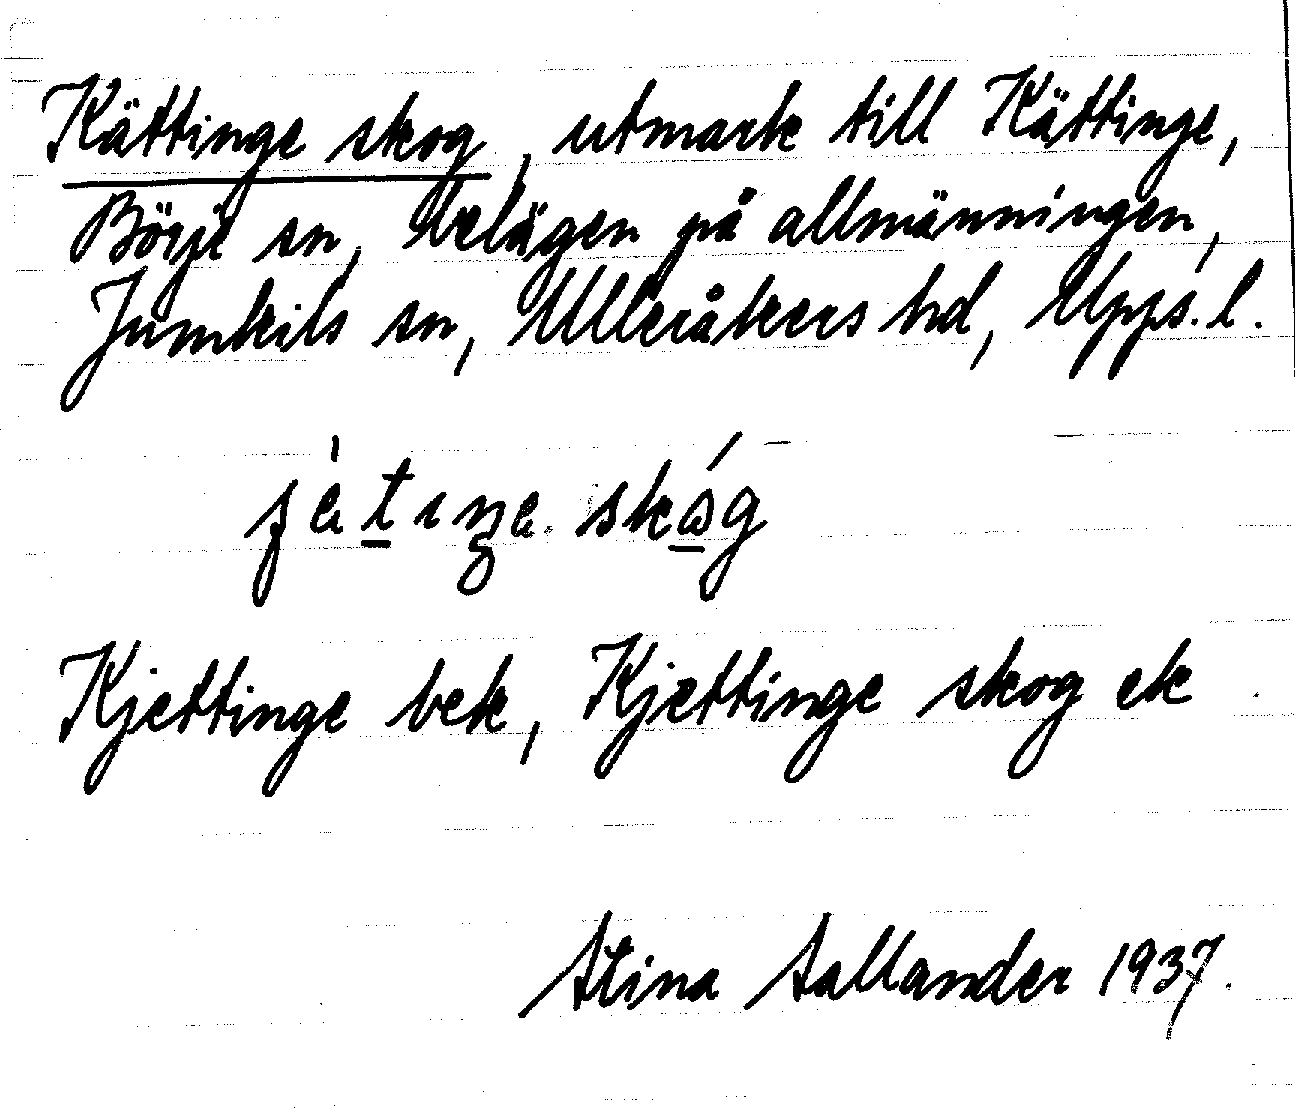 Kättinge skog, utmark till Kättinge,
Börje sn, belägen på allmänningen,
Jumkils sn, Ulleråkers hd, Upps. l.
skog
Kjettinge bek, Kjettinge skog ek
Stina Sallander 1937.